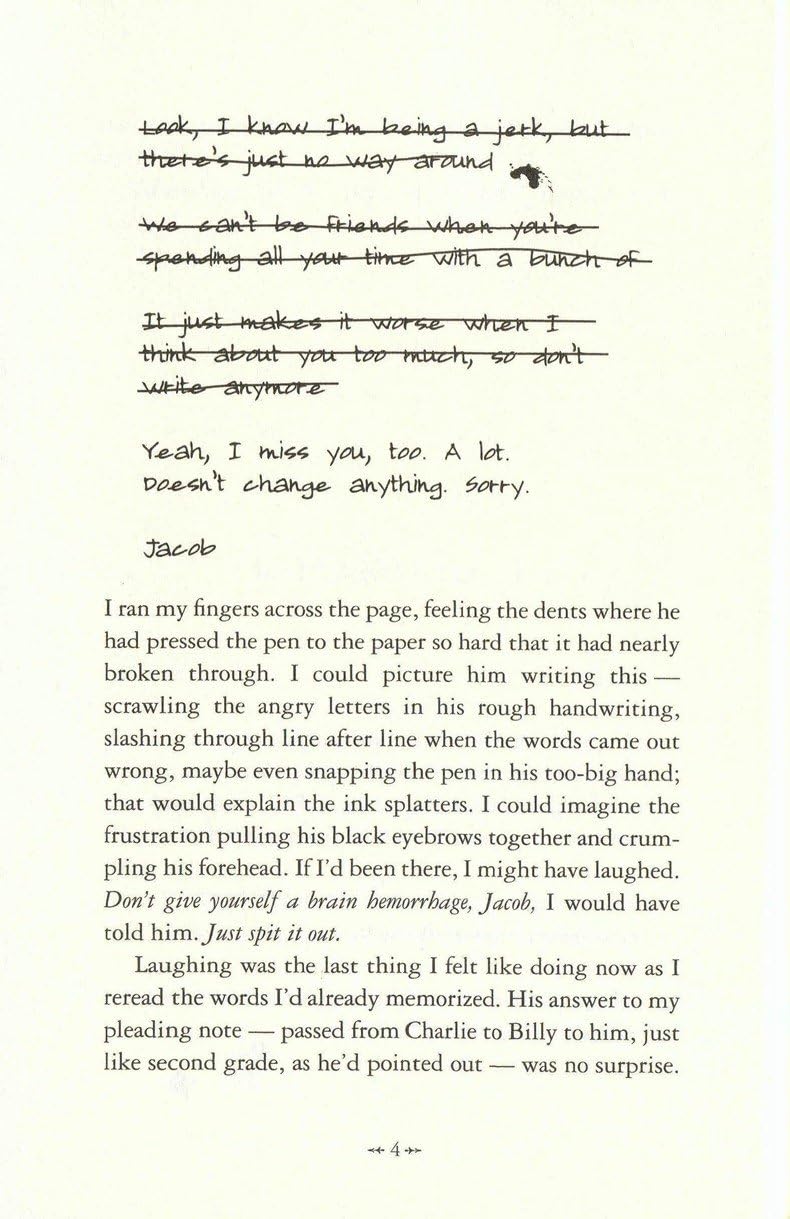 Look, I know I'm being a jerk, but
there's just no way around
We can't be friends when you're
spending all your time with a bunch of
It just makes it worse when I
think about you too much, so don't
write anymore
Yeah, I miss you, too. A lot.
Doesn't change anything. Sorry.
Jacob
I ran my fingers across the page, feeling the dents where he
had pressed the pen to the paper so hard that it had nearly
broken through. I could picture him writing this —
scrawling the angry letters in his rough handwriting,
slashing through line after line when the words came out
wrong, maybe even snapping the pen in his too-big hand;
that would explain the ink splatters. I could imagine the
frustration pulling his black eyebrows together and crum-
pling his forehead. If I'd been there, I might have laughed.
Don't give yourself a brain hemorrhage, Jacob, I would have
told him. Just spit it out.
Laughing was the last thing I felt like doing now as I
reread the words I'd already memorized. His answer to my
pleading note — passed from Charlie to Billy to him, just
like second grade, as he'd pointed out — was no surprise.
4